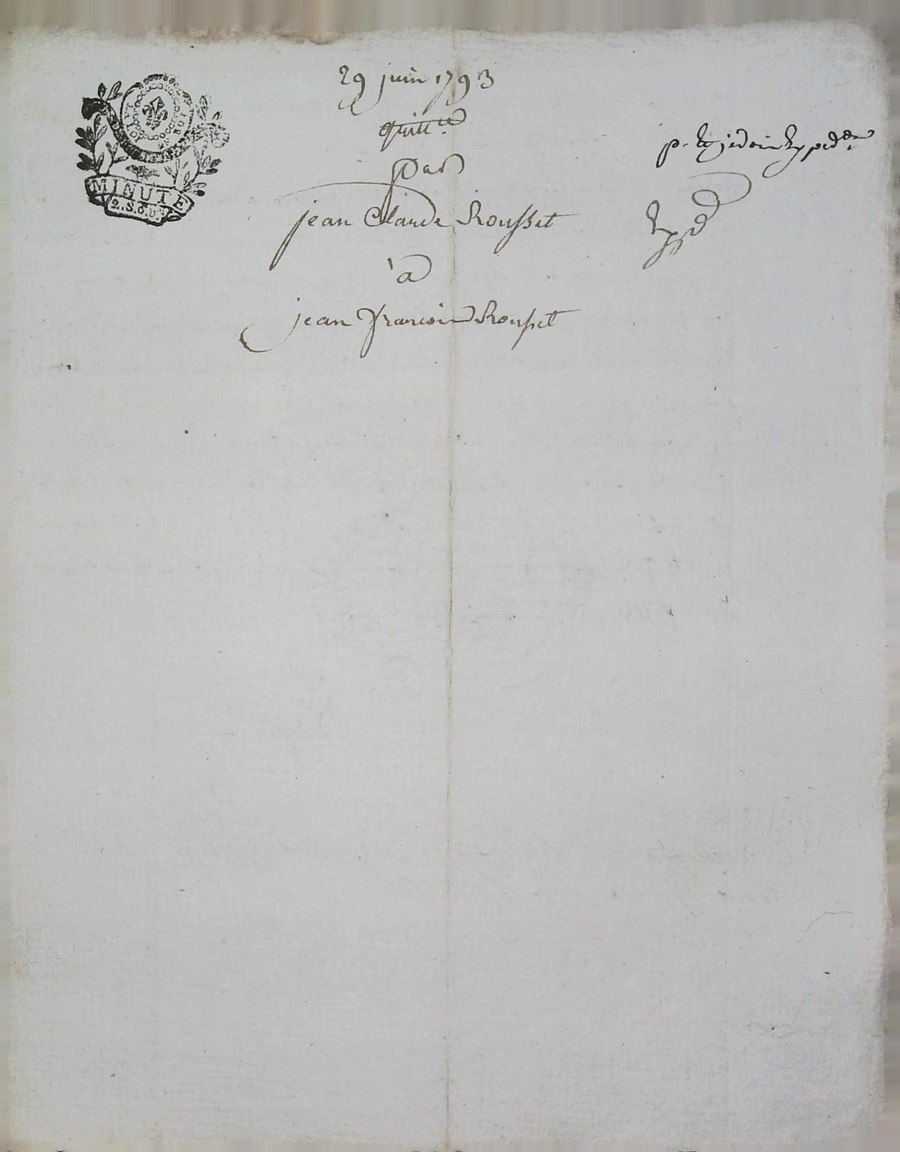 29 juin 1793
quitt.ce
par
jean Claude Rousset
à
jean francois Rousset
expd
MINUTE
2. S. 6. D.